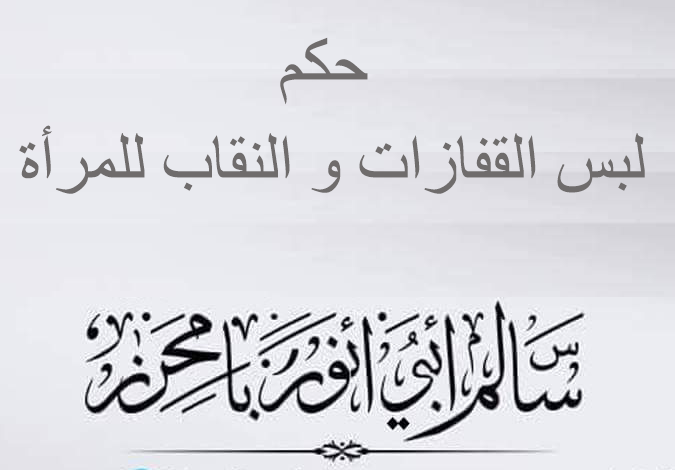 حكم
لبس القفازات و النقاب للمرأة
سالم أبي أنور بامحرز